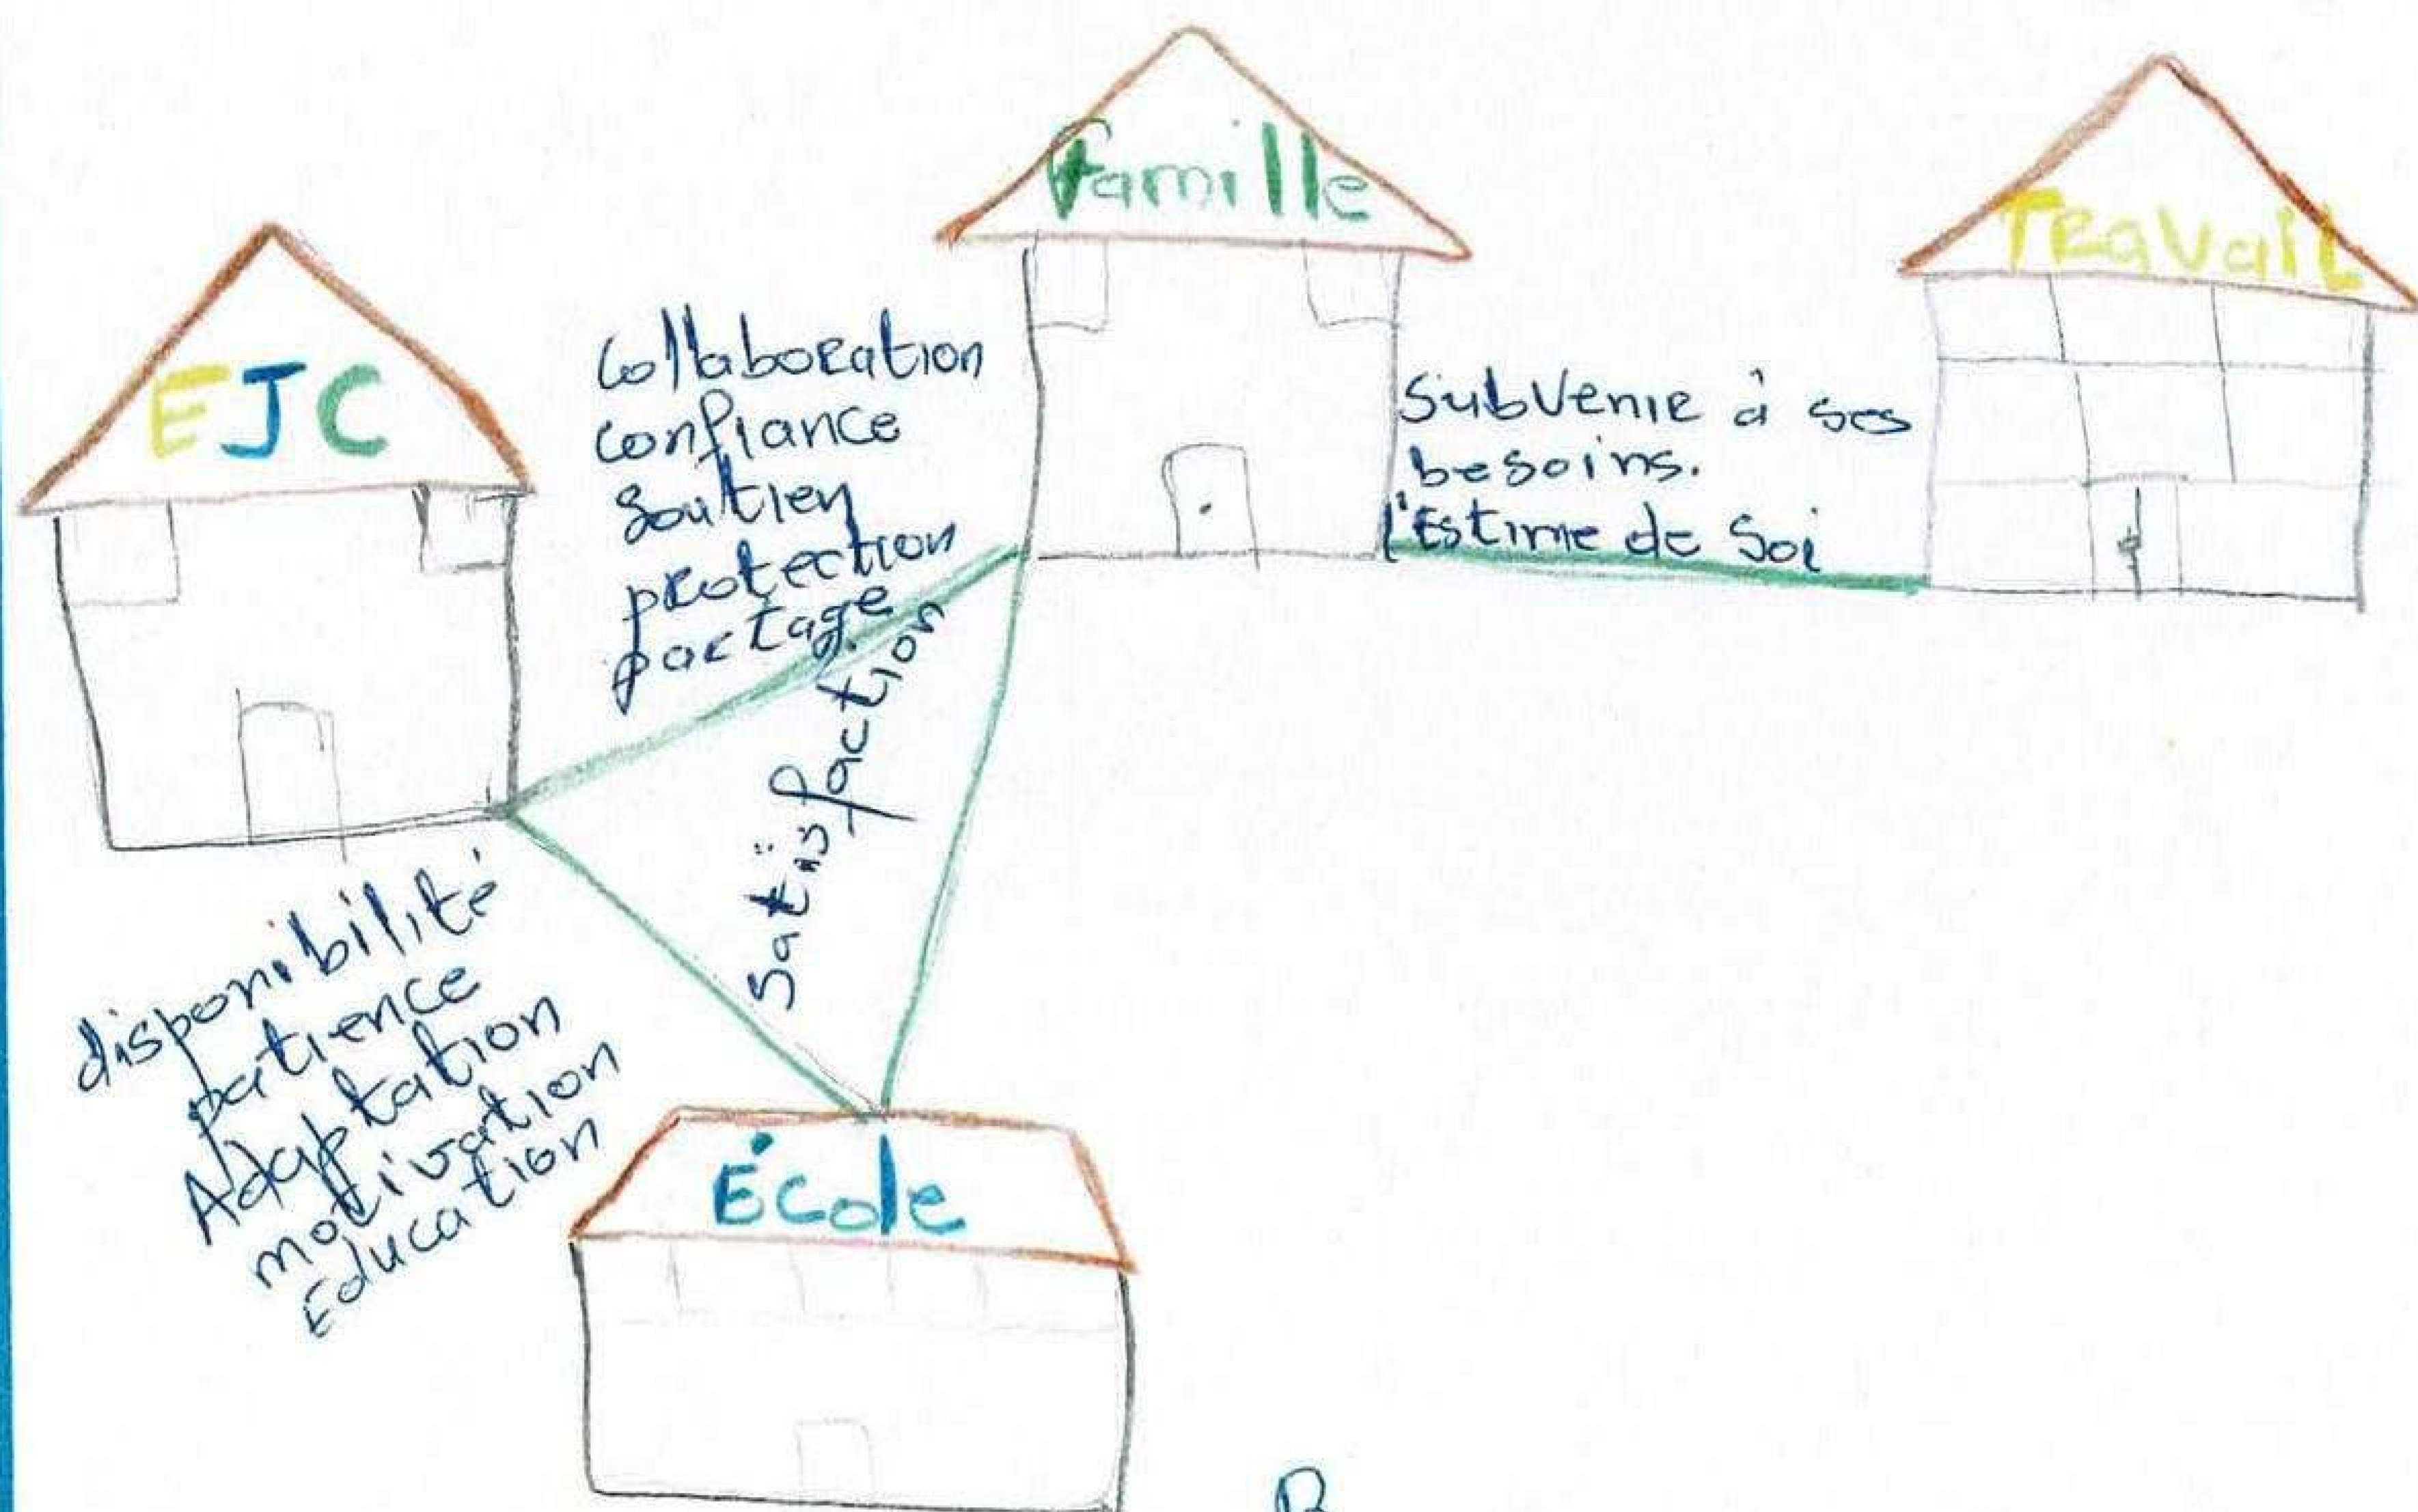 famille
TRavaiL
EJC
Collaboration
confiance
Soutien
protection
partage
SubVenir à ses
besoins.
l'Estime de Soi
Satisfaction
disponibilité
patience
Adaptation
motivation
Education
École